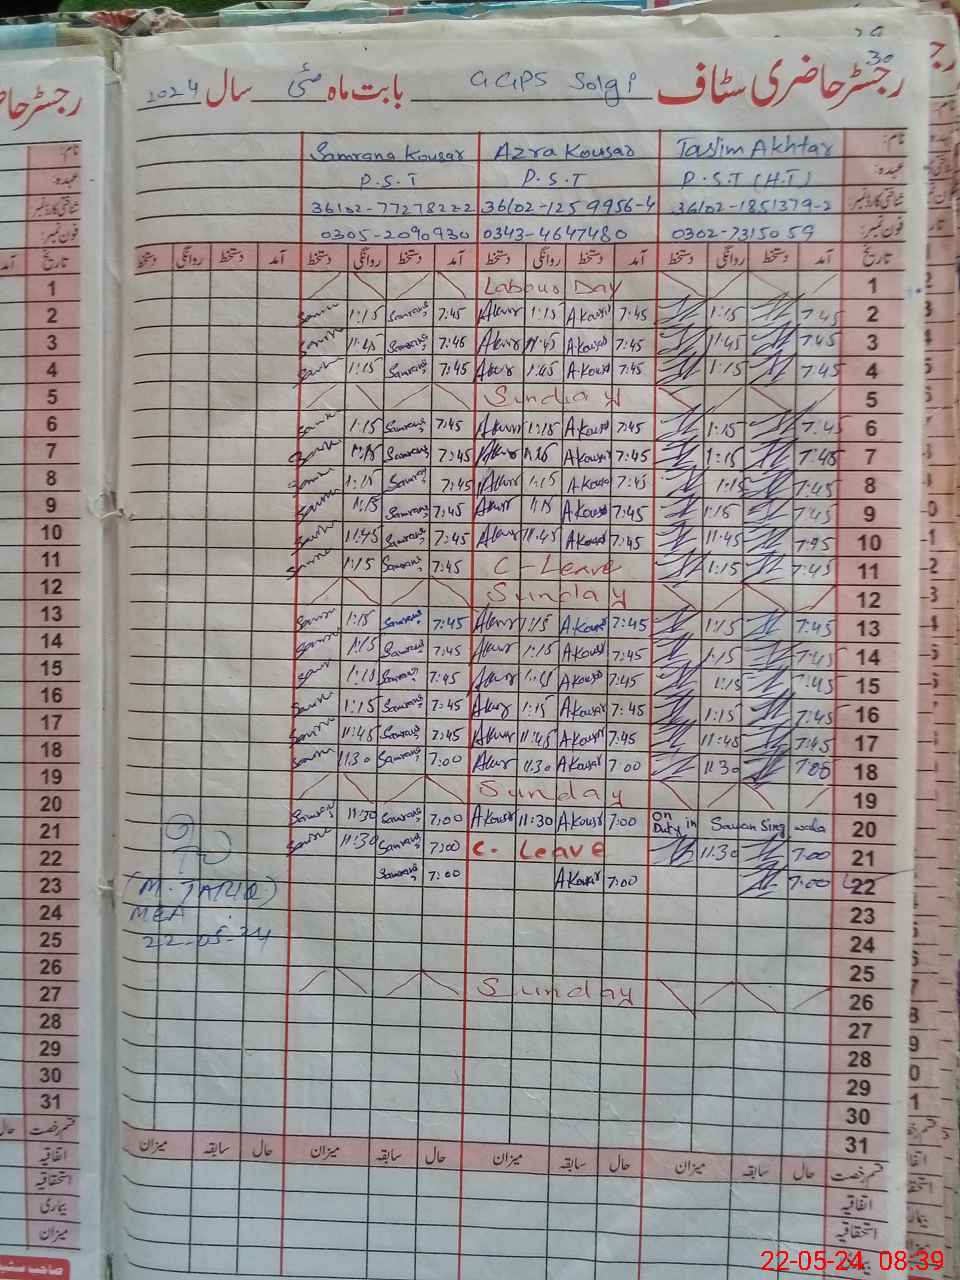 رجسٹر حاضری سٹاف GGPS Solgi بابت ماہ مئی سال 2024
30
نام: Taslim Akhtar Azra Kousar Samrana Kousar
عہدہ: P.S.T (H.T) P.S.T P.S.T
شناختی کارڈ نمبر: 36102-1851379-2 36102-1259956-4 36102-7727822-2
فون نمبر: 0302-7315059 0343-4647480 0305-2090930
تاریخ آمد دستخط روانگی دستخط آمد دستخط روانگی دستخط آمد دستخط روانگی دستخط آمد دستخط روانگی دستخط
1 Labour Day
2 7:45 1:15 7:45 A Kousar 1:15 7:45 Samrana 1:15
3 7:45 11:45 7:45 A Kousar 11:45 7:45 Samrana 11:45
4 7:45 1:15 7:45 A Kousar 1:45 7:45 Samrana 1:15
5 Sunday
6 7:45 1:15 7:45 A Kousar 1:15 7:45 Samrana 1:15
7 7:45 1:15 7:45 A Kousar 1:15 7:45 Samrana 1:15
8 7:45 1:15 7:45 A Kousar 1:15 7:45 Samrana 1:15
9 7:45 1:15 7:45 A Kousar 1:15 7:45 Samrana 1:15
10 7:45 11:45 7:45 A Kousar 11:45 7:45 Samrana 11:45
11 7:45 1:15 C - Leave 7:45 Samrana 1:15
12 Sunday
13 7:45 1:15 7:45 A Kousar 1:15 7:45 Samrana 1:15
14 7:45 1:15 7:45 A Kousar 1:15 7:45 Samrana 1:15
15 7:45 1:15 7:45 A Kousar 7:45 Samrana
16 7:45 1:15 7:45 A Kousar 1:15 7:45 Samrana 1:15
17 7:45 11:45 7:45 A Kousar 11:45 7:45 Samrana 11:45
18 7:00 11:30 7:00 A Kousar 11:30 7:00 Samrana 11:30
19 Sunday
20 On Duty in Sawan Sing wala 7:00 A Kousar 11:30 A Kousar 7:00 Samrana 11:30 Samrana
21 7:00 11:30 C. Leave 7:00 Samrana 11:30
22 7:00 7:00 A Kousar 7:00 Samrana
23
24
25
26 Sunday
27
28
29
30
31
قسم رخصت حال سابقہ میزان حال سابقہ میزان حال سابقہ میزان حال سابقہ میزان
اتفاقیہ
استحقاقیہ
بیماری
(M. TARIQ)
MEA
22-05-24
رجسٹر حا
نام:
عہدہ:
شناختی کارڈ نمبر:
فون نمبر:
تاریخ آمد
1
2
3
4
5
6
7
8
9
10
11
12
13
14
15
16
17
18
19
20
21
22
23
24
25
26
27
28
29
30
31
قسم رخصت حال
اتفاقیہ
استحقاقیہ
بیماری
میزان
22-05-24 08:39